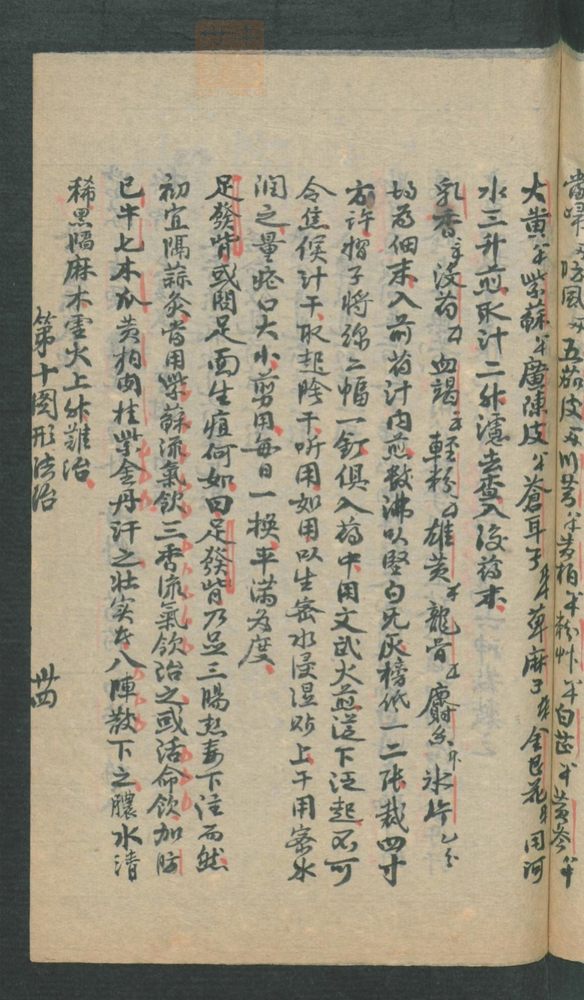 當歸 防風 五茄皮 川芎 黃柏 粉草 白芷 黃參
大黃 紫蘇 廣陳皮 蒼耳子 草麻子 金艮花 用河
水三升煎取汁二升濾去查入後葯末
乳香 沒葯 血竭 輕粉 雄黃 龍骨 麝香 氷片
均為細末入前葯汁內煎数沸以堅白无灰榜低一二張裁四寸
方許摺子將綿二幅一釘俱入葯中用文武火煎 下泛起不可
令焦候汁干取起陰干听用如用以生蜜水浸湿貼上干用蜜水
潤之量瘡口大小剪用每日一換平滿為度
足發背或問足面生疽何如曰足發背乃足三陽热毒下注而然
初宜隔蒜灸當用紫蘇流氣飲三香流氣飲治之或活命飲加防
已牛七木瓜黃柏肉桂紫金丹汗之壯实者八陣散下之膿水清
稀黑陷麻木雲火上升難治
第十图形法治
卅四